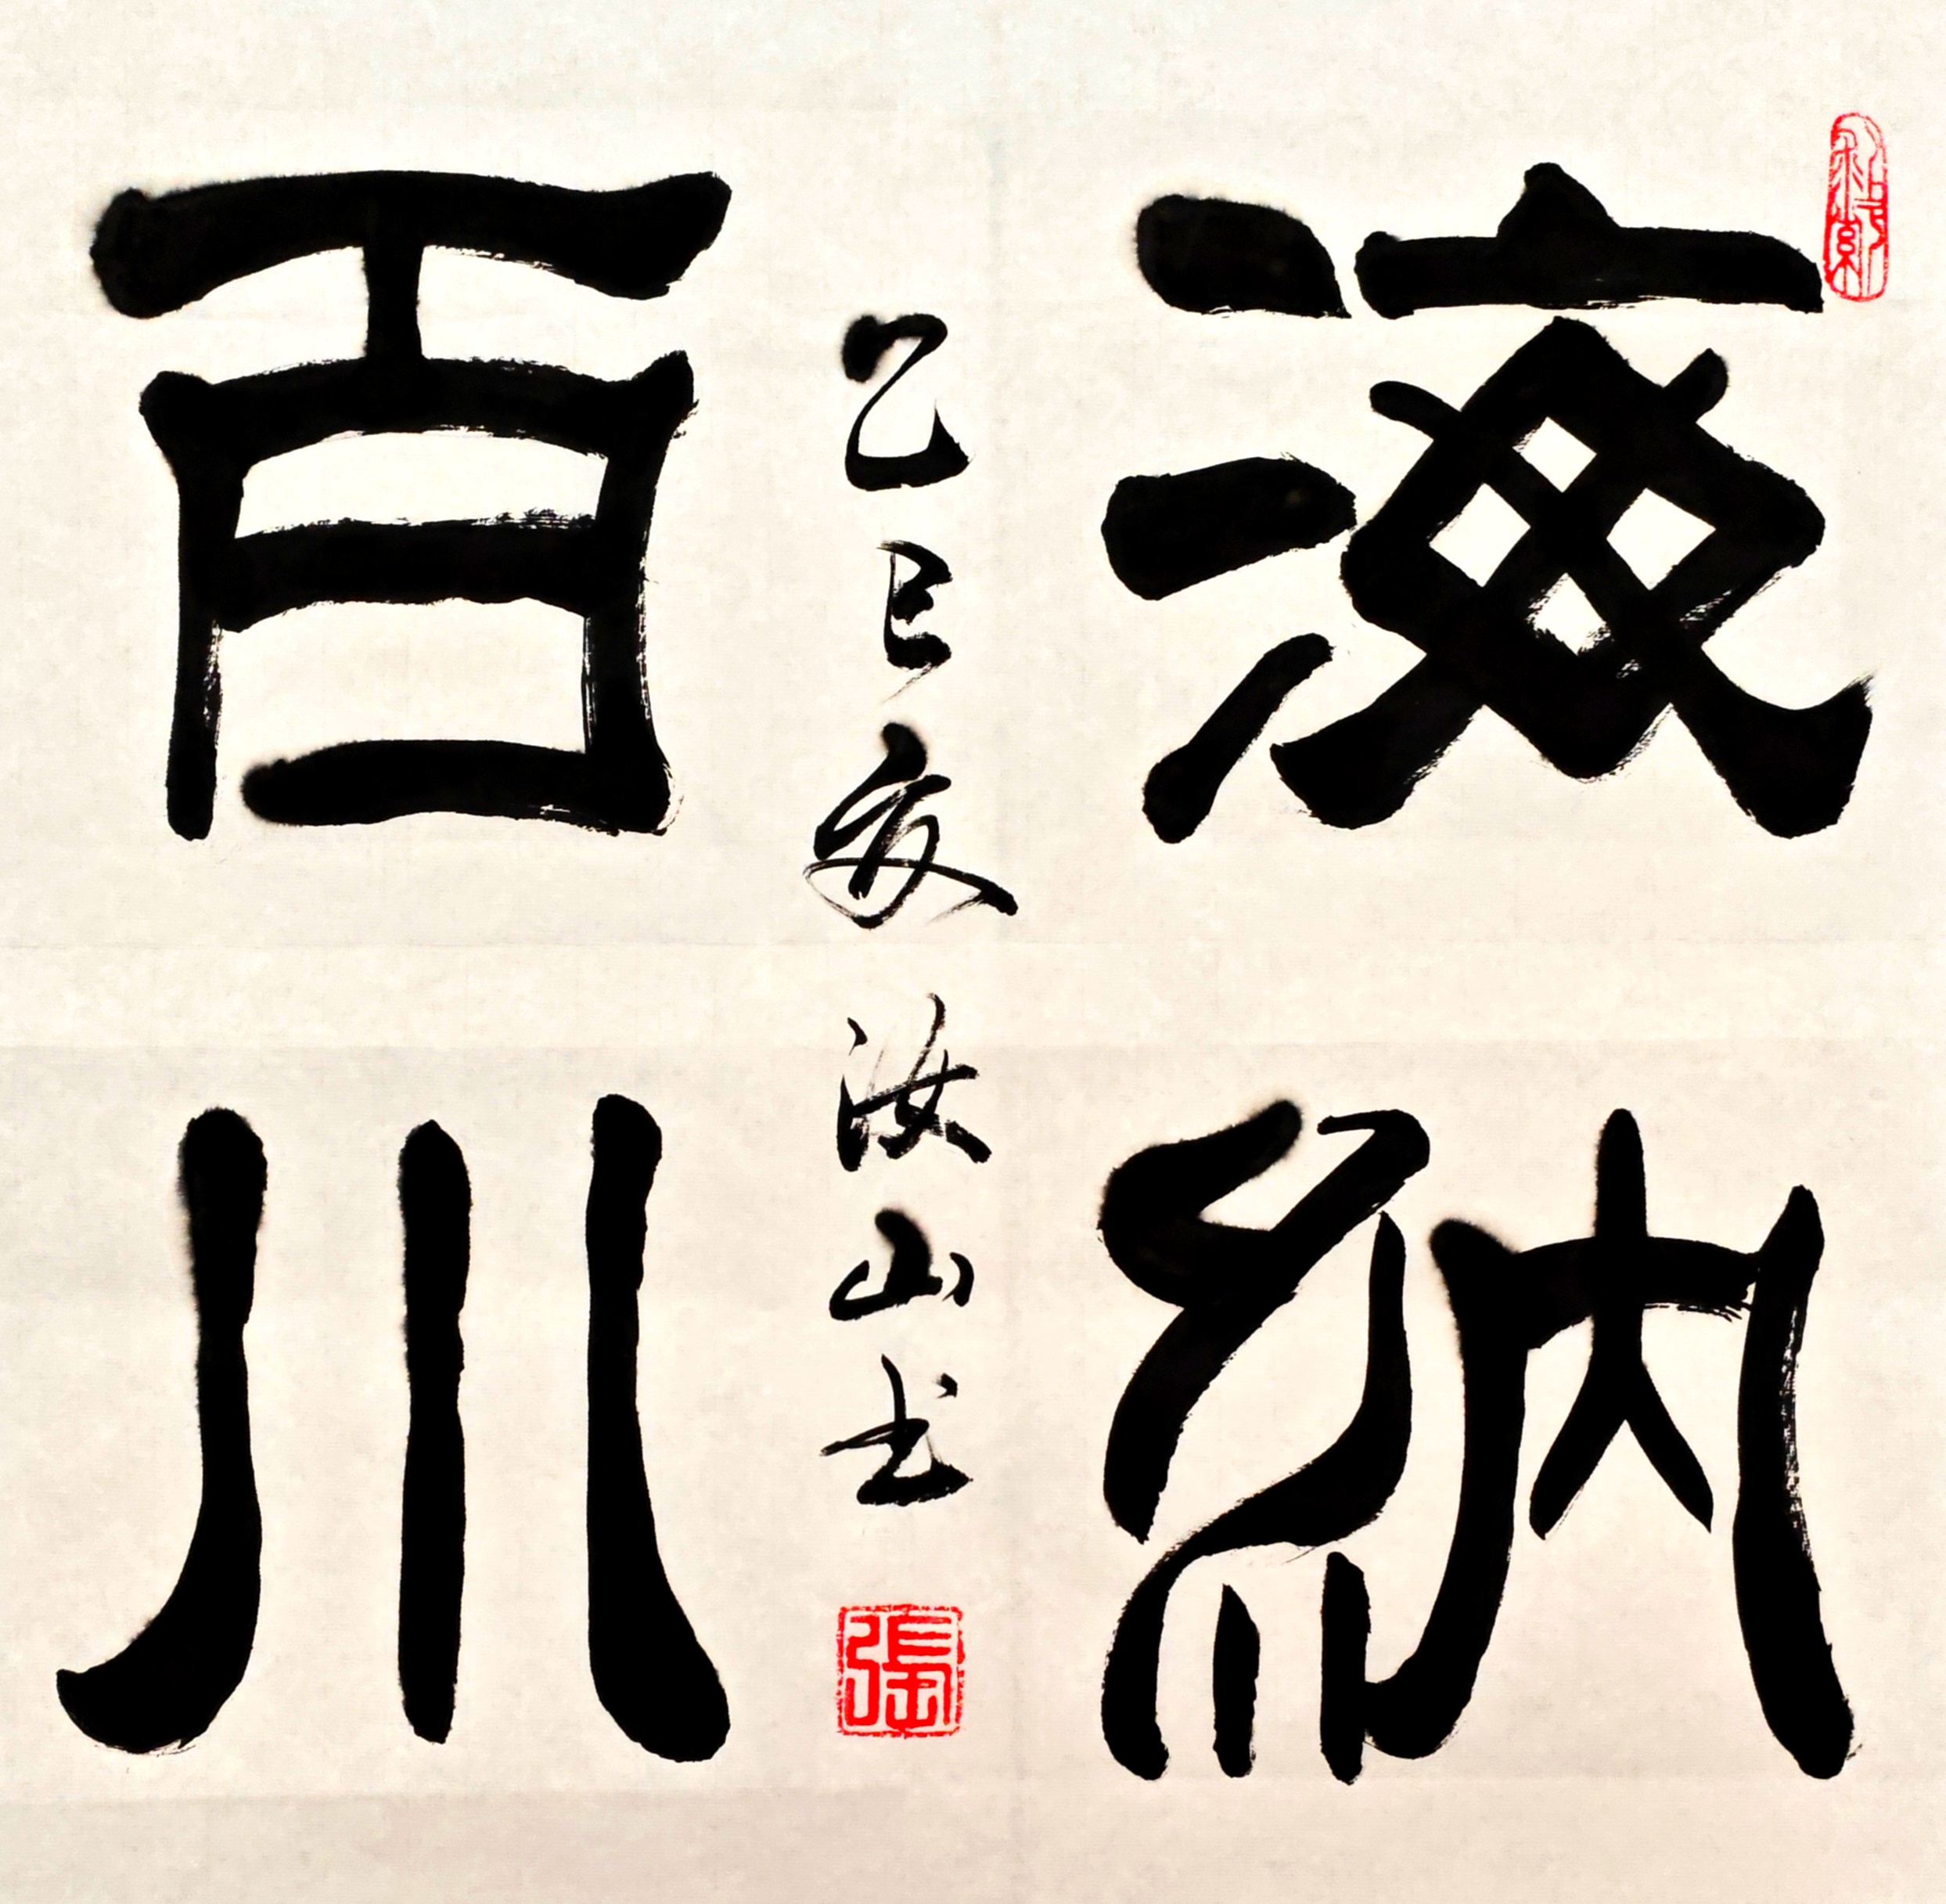 海納
百川
乙巳夏汝山书
張